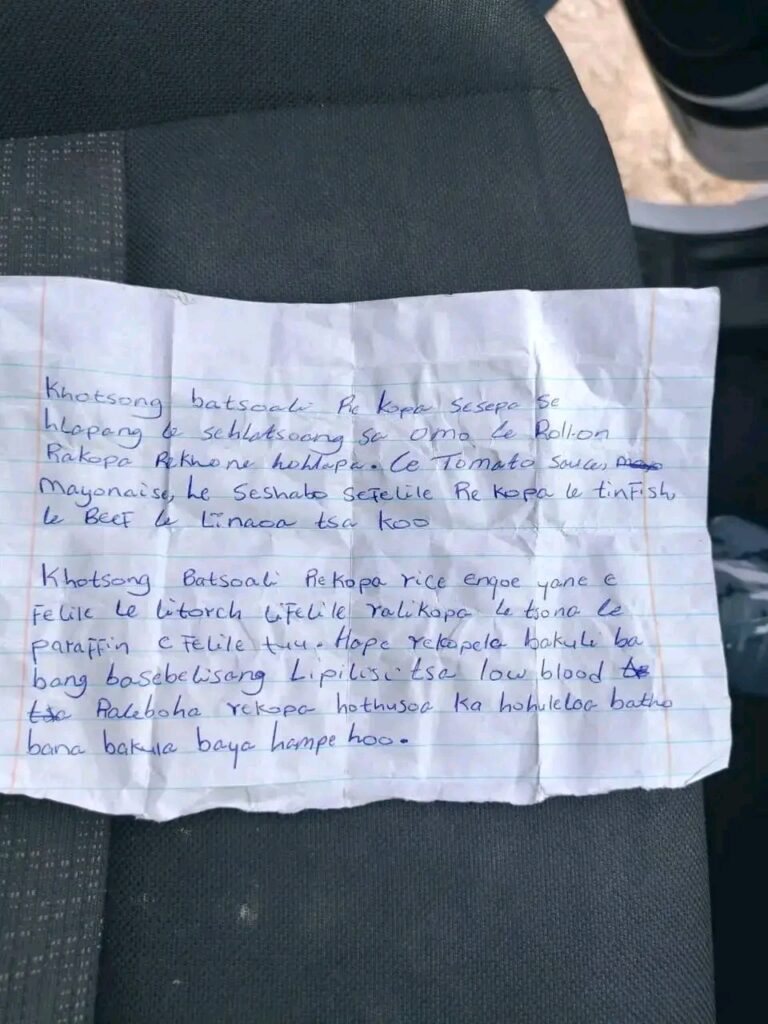 Khotsong batsoali Re kopa sesepa se
hlapang le sehlatsoang sa omo le Roll-on
Rakopa Rekhone hohlapa. Le Tomato sauce,
Mayonaise, Le Seshabo seFelile Re kopa le tinFish,
le BEEF le Linaoa tsa koo
Khotsong Batsoali Rekopa rice engoe yane e
Felile Le litorch liFelile ralikopa le tsona le
paraffin e Felile tuu. Hape rekopela bakuli ba
bang basebelisang Lipilisi tsa low blood
Raleboha rekopa hothusoa ka hohuleloa batho
bana bakula baya hampe hoo.